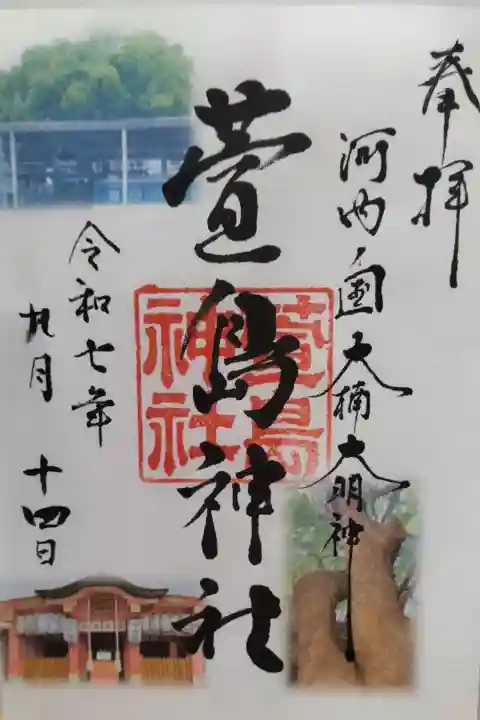 奉拝
河内ノ国大楠大明神
萱島神社
萱島
神社
令和七年
九月十四日